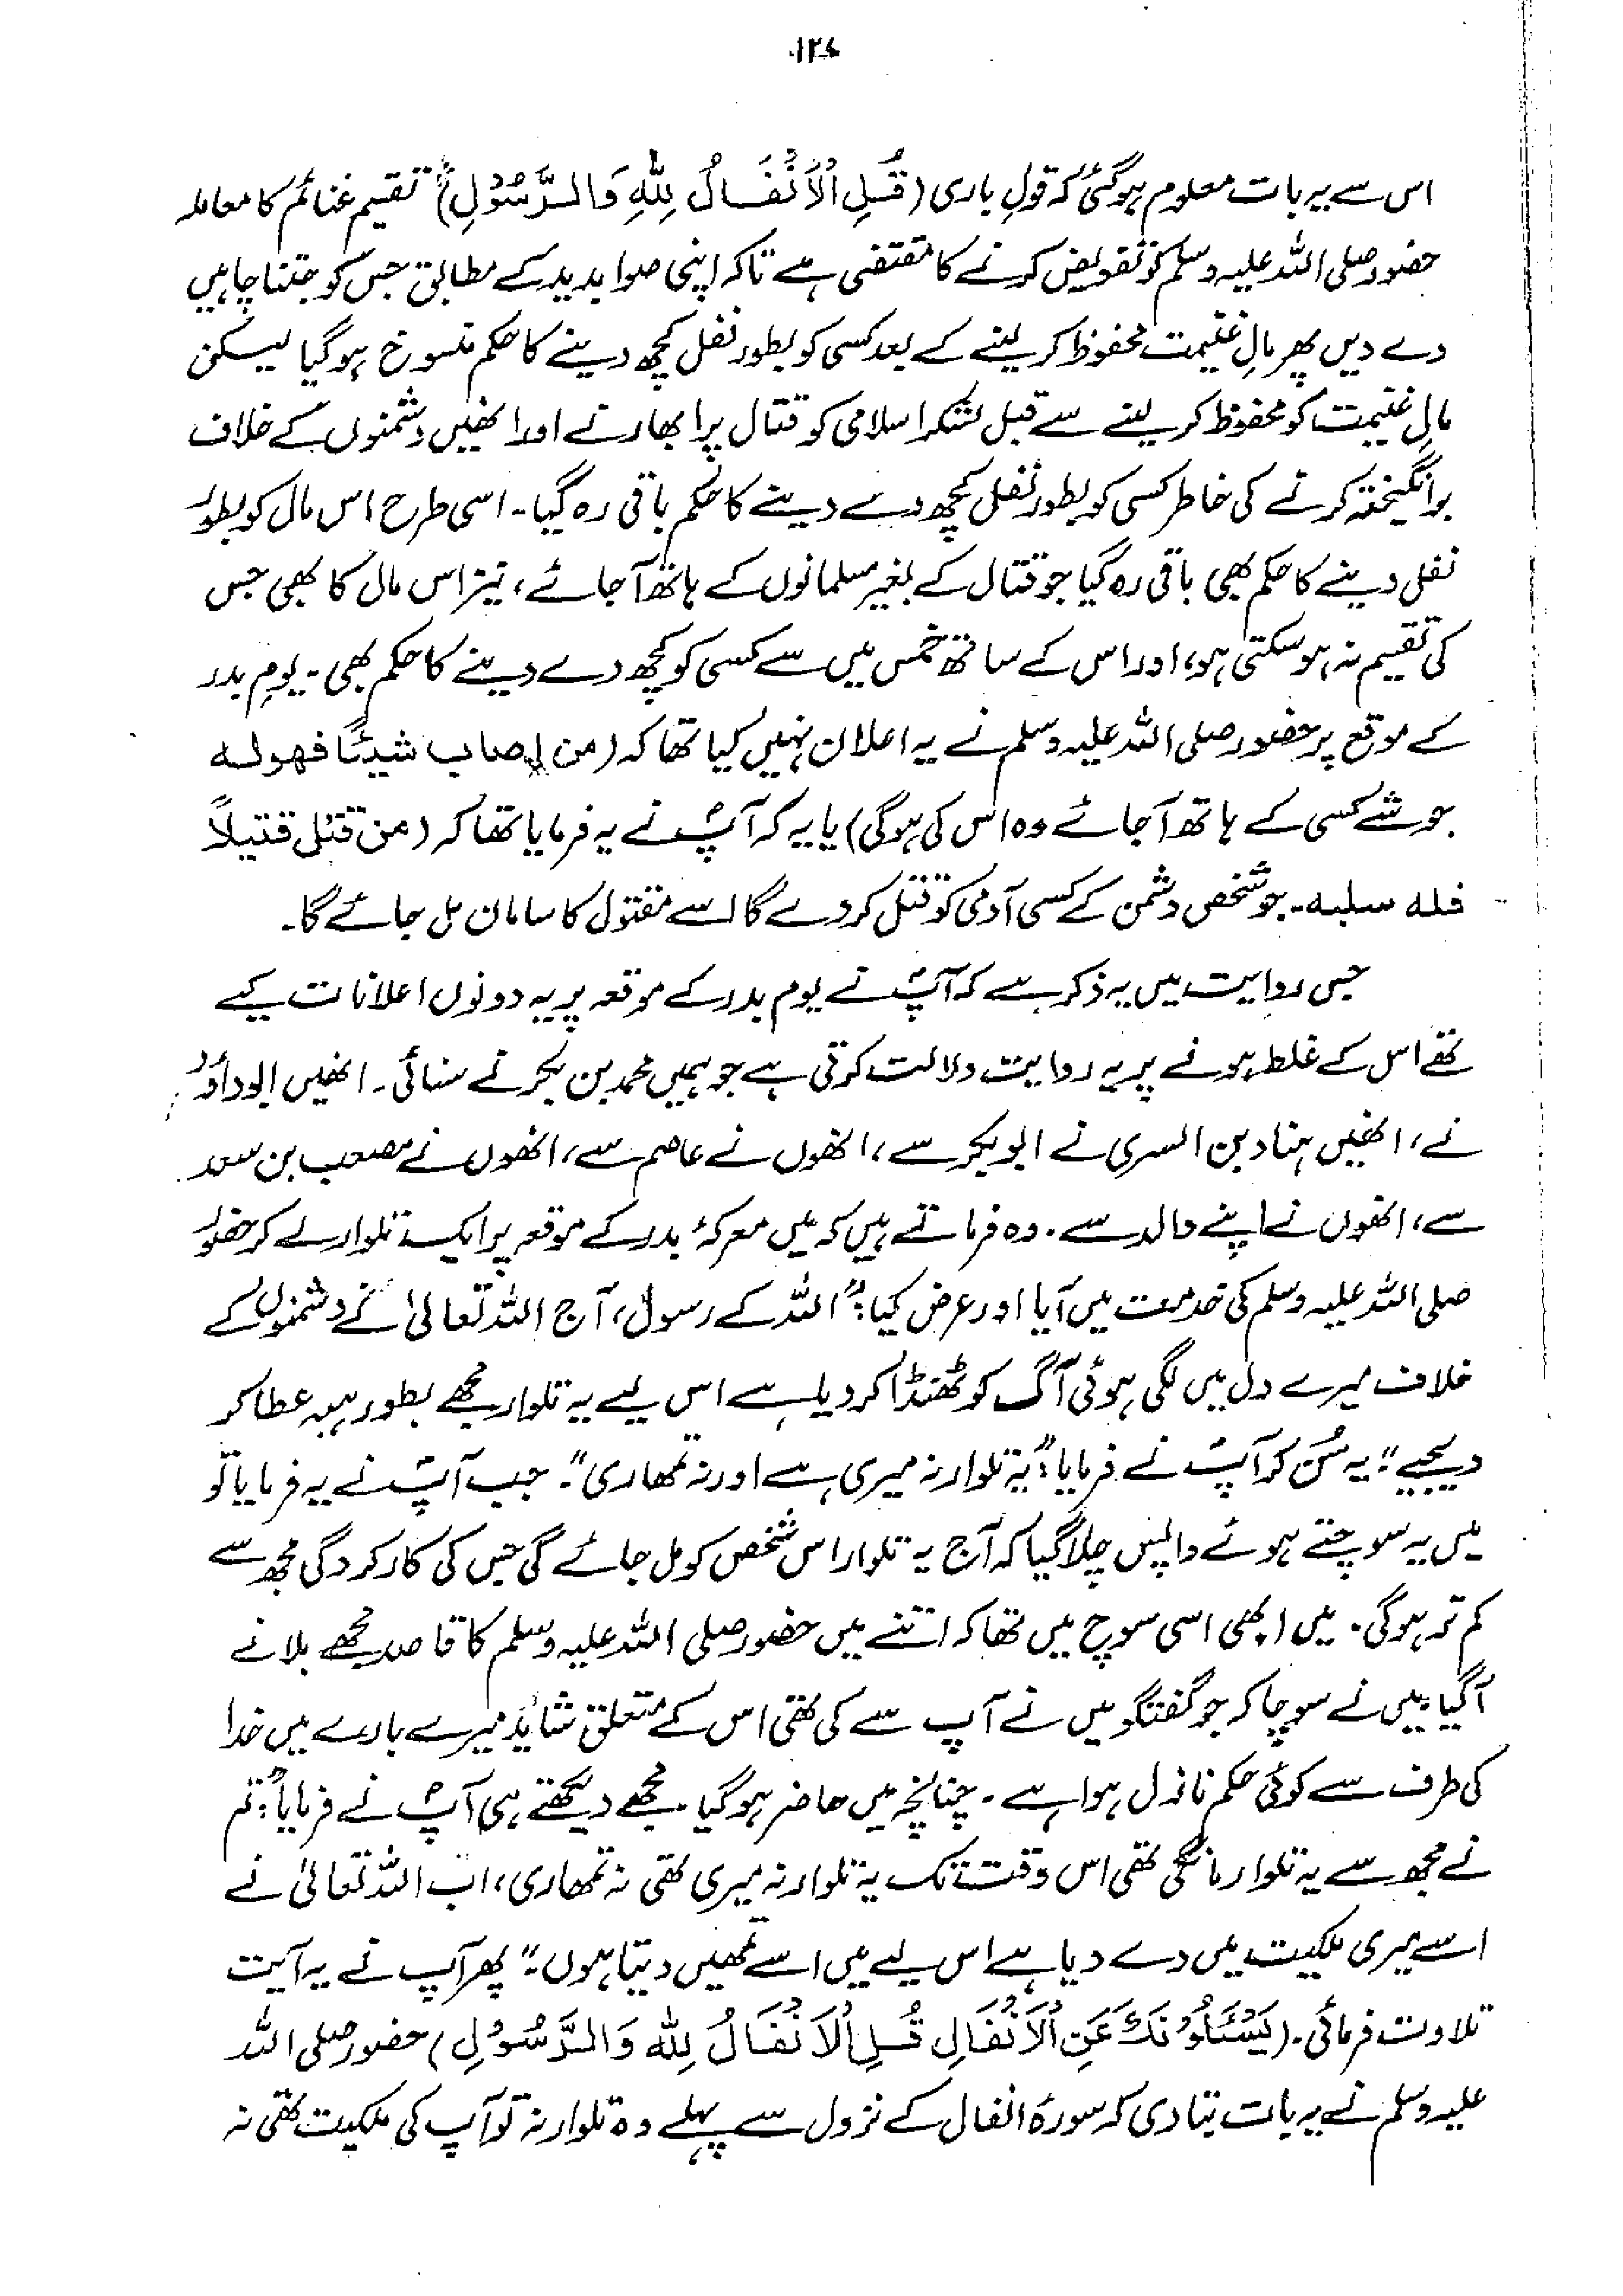 ۱۲۷
اس سے یہ بات معلوم ہوگئی کہ قولِ باری (قُلِ الْاَنْفَالُ لِلّٰہِ وَالرَّسُوْلِ) تقسیم غنائم کا معاملہ
حضور صلی اللہ علیہ وسلم کو تفویض کرنے کا مقتضی ہے تاکہ اپنی صوابدید کے مطابق جس کو جتنا چاہیں
دے دیں پھر مالِ غنیمت محفوظ کر لینے کے بعد کسی کو بطور نفل کچھ دینے کا حکم منسوخ ہوگیا لیکن
مالِ غنیمت کو محفوظ کر لینے سے قبل لشکر اسلامی کو قتال پر ابھارنے اور انھیں دشمنوں کے خلاف
برانگیختہ کرنے کی خاطر کسی کو بطور نفل کچھ دے دینے کا حکم باقی رہ گیا۔ اسی طرح اس مال کو بطور
نفل دینے کا حکم بھی باقی رہ گیا جو قتال کے بغیر مسلمانوں کے ہاتھ آجائے، نیز اس مال کا بھی جس
کی تقسیم نہ ہو سکتی ہو، اور اس کے ساتھ خمس میں سے کسی کو کچھ دے دینے کا حکم بھی۔ یومِ بدر
کے موقع پر حضور صلی اللہ علیہ وسلم نے یہ اعلان نہیں کیا تھا کہ (من اصاب شیئًا فھو لہ
جو شے کسی کے ہاتھ آجائے وہ اس کی ہوگی) یا یہ کہ آپؐ نے یہ فرمایا تھا کہ (من قتل قتیلاً
فلہ سلبہ۔ جو شخص دشمن کے کسی آدمی کو قتل کردے گا اسے مقتول کا سامان مل جائے گا۔
جس روایت میں یہ ذکر ہے کہ آپؐ نے یوم بدر کے موقعہ پر یہ دونوں اعلانات کیے
تھے اس کے غلط ہونے پر یہ روایت دلالت کرتی ہے جو ہمیں محمد بن بکر نے سنائی۔ انھیں ابوداؤد
نے، انھیں ہناد بن السری نے ابوبکر سے، انھوں نے عاصم سے، انھوں نے مصعب بن سعد
سے، انھوں نے اپنے والد سے۔ وہ فرماتے ہیں کہ میں معرکۂ بدر کے موقعہ پر ایک تلوار لے کر حضور
صلی اللہ علیہ وسلم کی خدمت میں آیا اور عرض کیا: "اللہ کے رسولؐ، آج اللہ تعالیٰ نے دشمنوں کے
خلاف میرے دل میں لگی ہوئی آگ کو ٹھنڈا کردیا ہے اس لیے یہ تلوار مجھے بطور ہبہ عطا کر
دیجیے"۔ یہ سُن کر آپؐ نے فرمایا: "یہ تلوار نہ میری ہے اور نہ تمھاری"۔ جب آپؐ نے یہ فرمایا تو
میں یہ سوچتے ہوئے واپس چلا گیا کہ آج یہ تلوار اس شخص کو مل جائے گی جس کی کارکردگی مجھ سے
کم تر ہوگی۔ میں ابھی اسی سوچ میں تھا کہ اتنے میں حضور صلی اللہ علیہ وسلم کا قاصد مجھے بلانے
آگیا، میں نے سوچا کہ جو گفتگو میں نے آپ سے کی تھی اس کے متعلق شاید میرے بارے میں خدا
کی طرف سے کوئی حکم نازل ہوا ہے۔ چنانچہ میں حاضر ہوگیا۔ مجھے دیکھتے ہی آپؐ نے فرمایا: "تم
نے مجھ سے یہ تلوار مانگی تھی اس وقت تک یہ تلوار نہ میری تھی نہ تمھاری، اب اللہ تعالیٰ نے
اسے میری ملکیت میں دے دیا ہے اس لیے میں اسے تمھیں دیتا ہوں"۔ پھر آپ نے یہ آیت
تلاوت فرمائی۔ (یَسْئَلُوْنَکَ عَنِ الْاَنْفَالِ قُلِ الْاَنْفَالُ لِلّٰہِ وَالرَّسُوْلِ) حضور صلی اللہ
علیہ وسلم نے یہ بات بتا دی کہ سورۂ انفال کے نزول سے پہلے وہ تلوار نہ تو آپ کی ملکیت تھی نہ